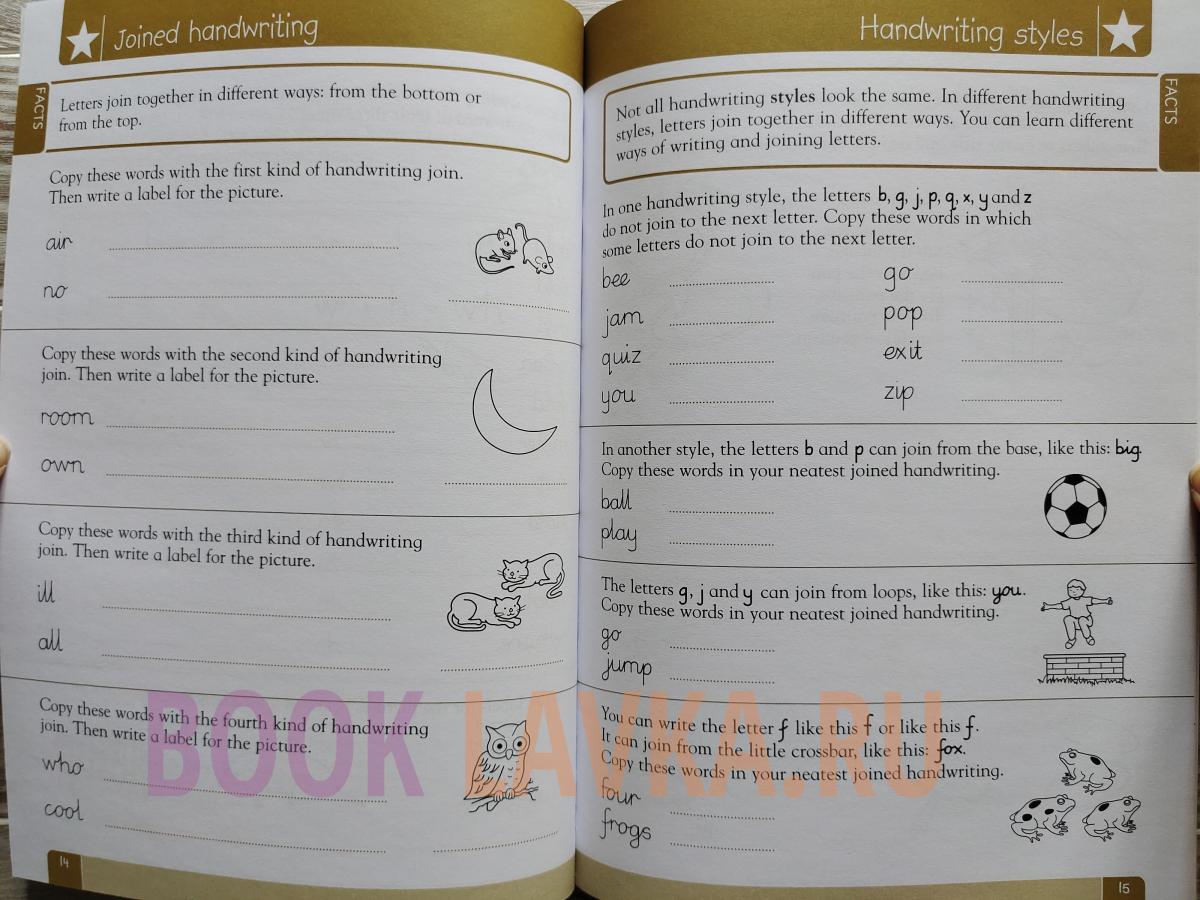 Joined handwriting
FACTS
Letters join together in different ways: from the bottom or
from the top.
Copy these words with the first kind of handwriting join.
Then write a label for the picture.
air
no
Copy these words with the second kind of handwriting
join. Then write a label for the picture.
room
own
Copy these words with the third kind of handwriting
join. Then write a label for the picture.
ill
all
Copy these words with the fourth kind of handwriting
join. Then write a label for the picture.
who
cool
14
Handwriting styles
FACTS
Not all handwriting styles look the same. In different handwriting
styles, letters join together in different ways. You can learn different
ways of writing and joining letters.
In one handwriting style, the letters b, g, j, p, q, x, y and z
do not join to the next letter. Copy these words in which
some letters do not join to the next letter.
bee go
jam pop
quiz exit
you zip
In another style, the letters b and p can join from the base, like this: big.
Copy these words in your neatest joined handwriting.
ball
play
The letters g, j and y can join from loops, like this: you.
Copy these words in your neatest joined handwriting.
go
jump
You can write the letter f like this f or like this f.
It can join from the little crossbar, like this: fox.
Copy these words in your neatest joined handwriting.
four
frogs
15
BOOK LAVKA.RU